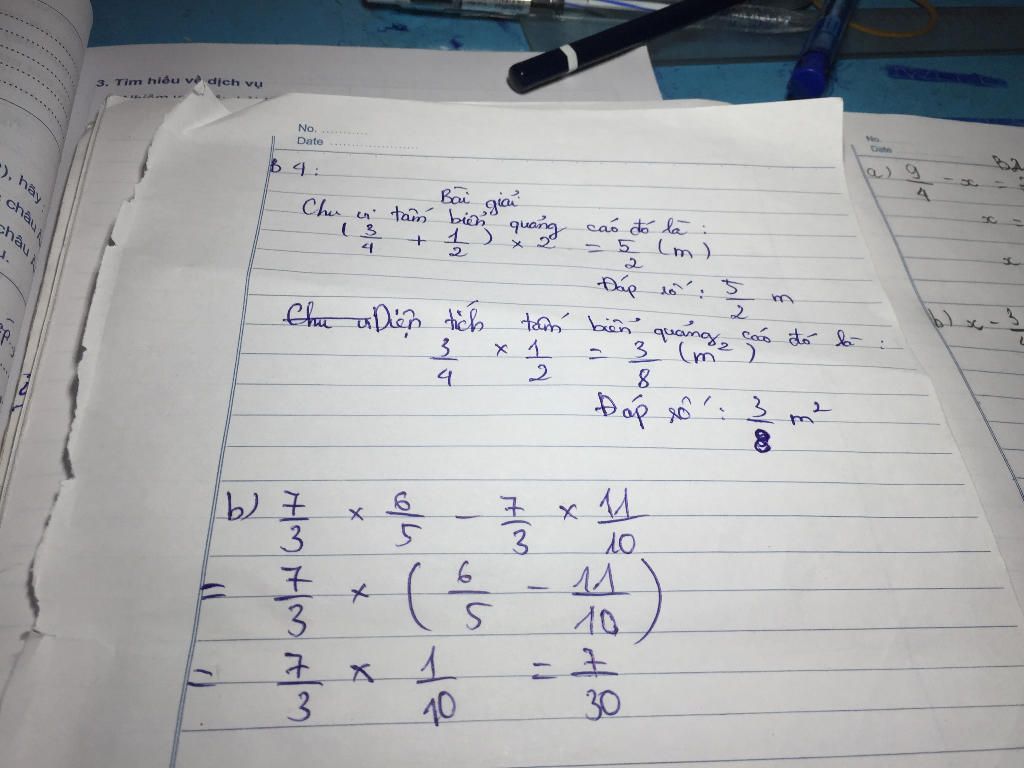 3. Tìm hiểu về dịch vụ
), hãy
châu Á
châu Á
u.
No. ............
Date ......................
B 4 :
Bài giải
Chu vi tấm biển quảng cáo đó là :
( 3/4 + 1/2 ) × 2 = 5/2 (m)
Đáp số : 5/2 m
Chu vi Diện tích tấm biển quảng cáo đó là :
3/4 × 1/2 = 3/8 (m²)
Đáp số : 3/8 m²
b) 7/3 × 6/5 - 7/3 × 11/10
= 7/3 × ( 6/5 - 11/10 )
= 7/3 × 1/10 = 7/30
No.
Date
B2
a) 9/4 - x =
x =
x
b) x - 3/